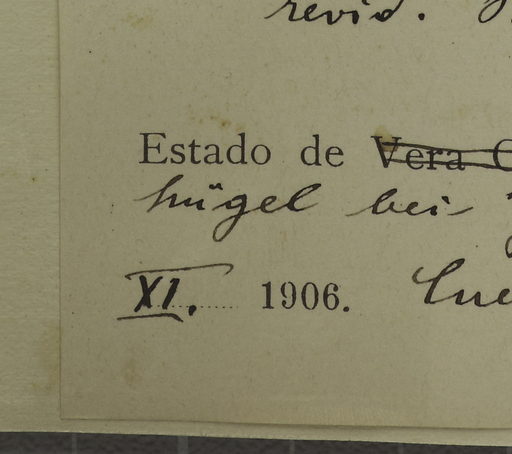 revid.
Estado de Vera
hügel bei
XI. 1906.